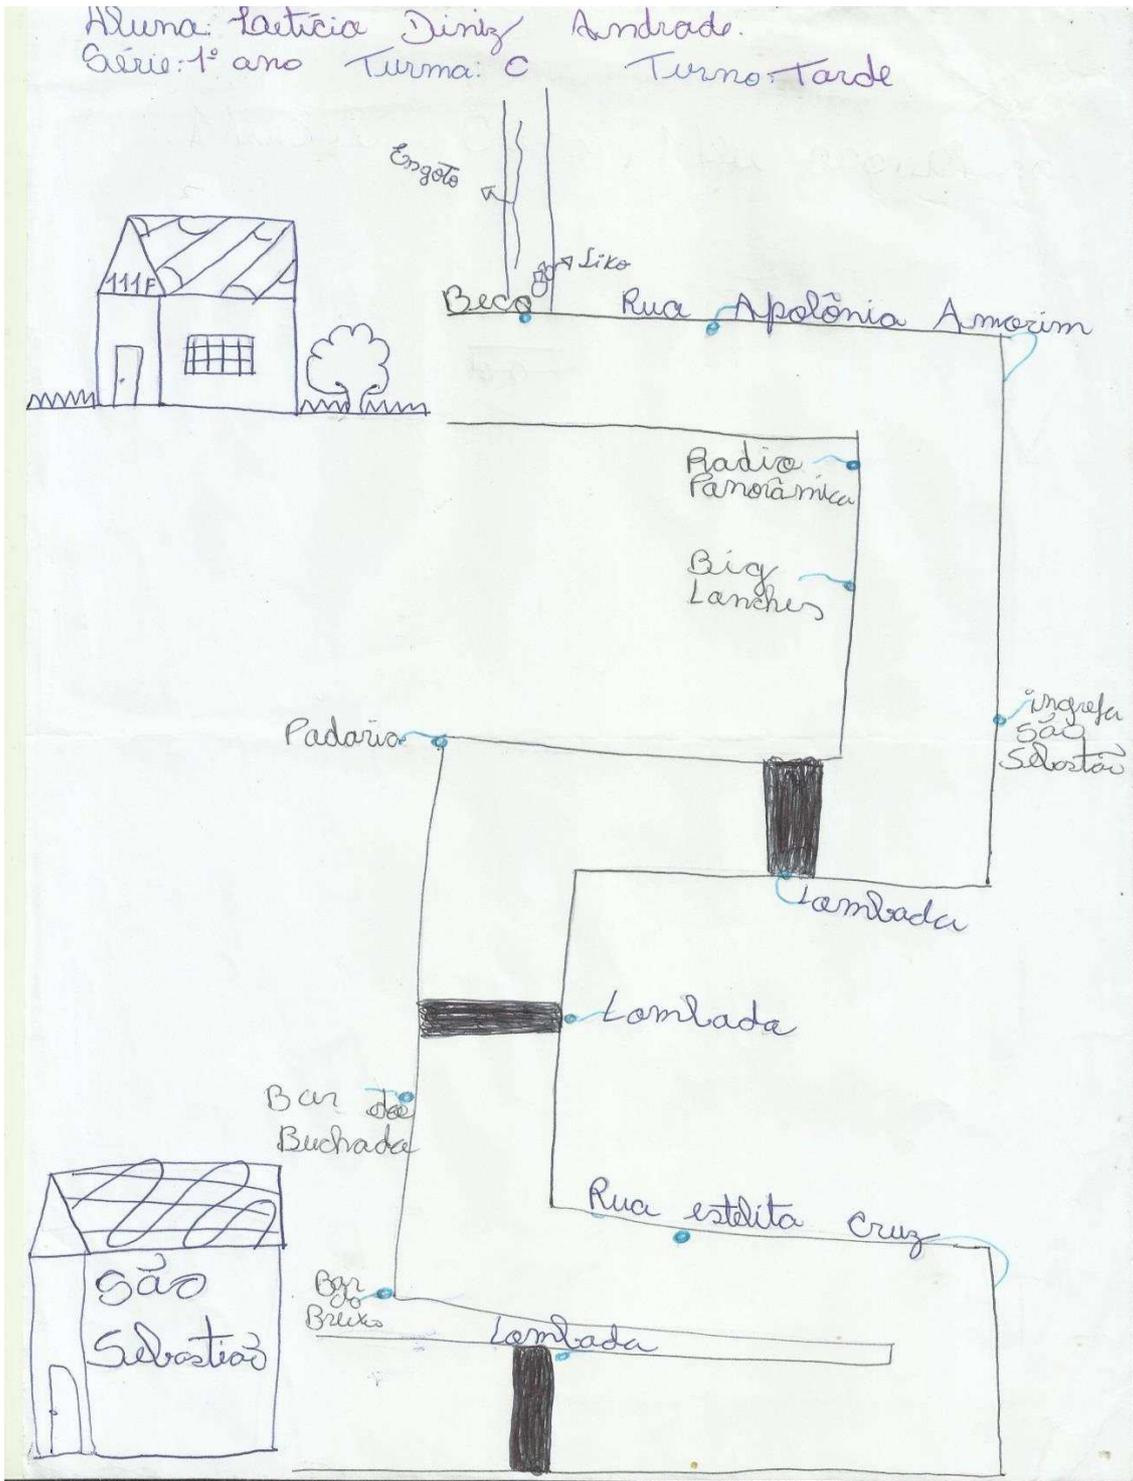 Aluna: Laetícia Diniz Andrade.
Série: 1º ano Turma: C Turno: Tarde
Esgoto
Lixo
111F
Beco
Rua Apolônia Amorim
Radio
Panorâmica
Big
Lanches
ingreja
São
Sebastião
Padaria
Lombada
Lombada
Bar da
Buchada
Rua estelita Cruz
São
Sebastião
Bar
do
Lombada